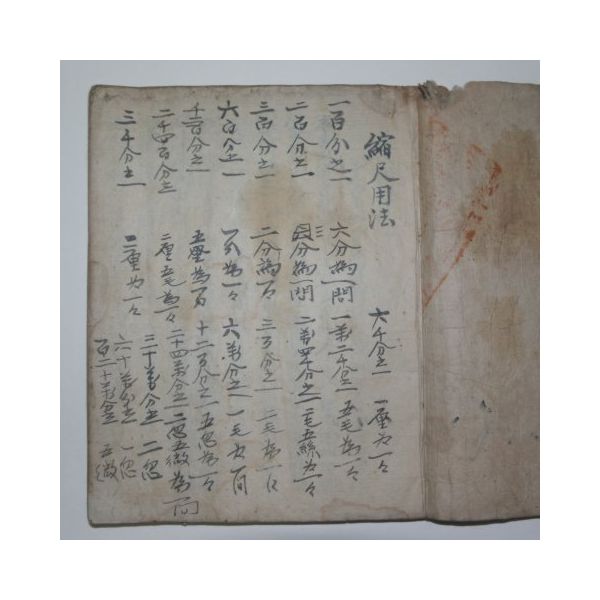 縮尺用法
一百分之一 六分為一間
二百分之一 三分為一間
三百分之一 二分為一々
六百分之一 一分為一々
千二百分之一 五厘為一々
二千四百分之一 二厘五毛為一々
三千分之一 二厘为一々
六千分之一 一厘为一々
一萬二千分之一 五毛為一々
二萬四千分之一 二毛五絲为一々
三万分之一 二毛為一々
六萬分之一 一毛为一间
十二万分之一 五忽為一々
二十四萬分之一 二忽五微為一间
三十萬分之一 二忽
六十萬分之一 一忽
百二十萬分之一 五微